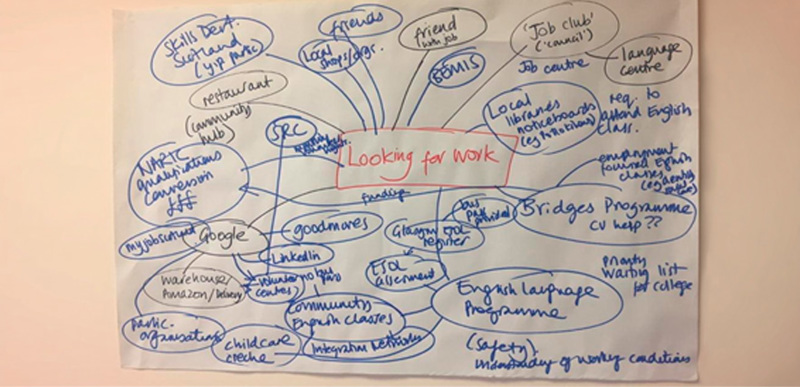 Skills Dev.
Scotland
friends
Local
shops/orgs.
friend
with job
BEMIS
'Job club'
('council')
Job centre
language
centre
restaurant
(community
hub)
SRC
Local
libraries
noticeboards
req. to
attend English
class.
Looking for work
NARIC
qualifications
conversion
£££
funding
employment
focused English
classes
bus
pass
provided
Bridges Programme
CV help ??
Glasgow ESOL
register
goodmoves
Google
myjobscotland
LinkedIn
volunteer
centre
no bus
pass
ESOL
assignment
priority
waiting list
for college
warehouse/
Amazon/Delivery
Community
English classes
English language
Programme
partic.
organisations
childcare
creche
Integration Networks
(safety)
of working conditions